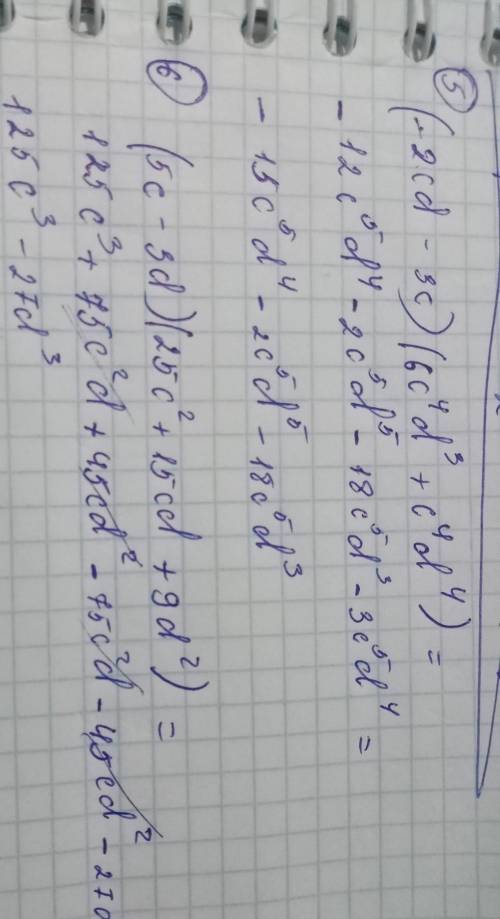 ⑤
(-2cd - 3c)(6c⁴d³ + c⁴d⁴) =
- 12c⁵d⁴ - 2c⁵d⁵ - 18c⁵d³ - 3c⁵d⁴ =
- 15c⁵d⁴ - 2c⁵d⁵ - 18c⁵d³
⑥
(5c - 3d)(25c² + 15cd + 9d²) =
125c³ + 75c²d + 45cd² - 75c²d - 45cd² - 27d
125c³ - 27d³